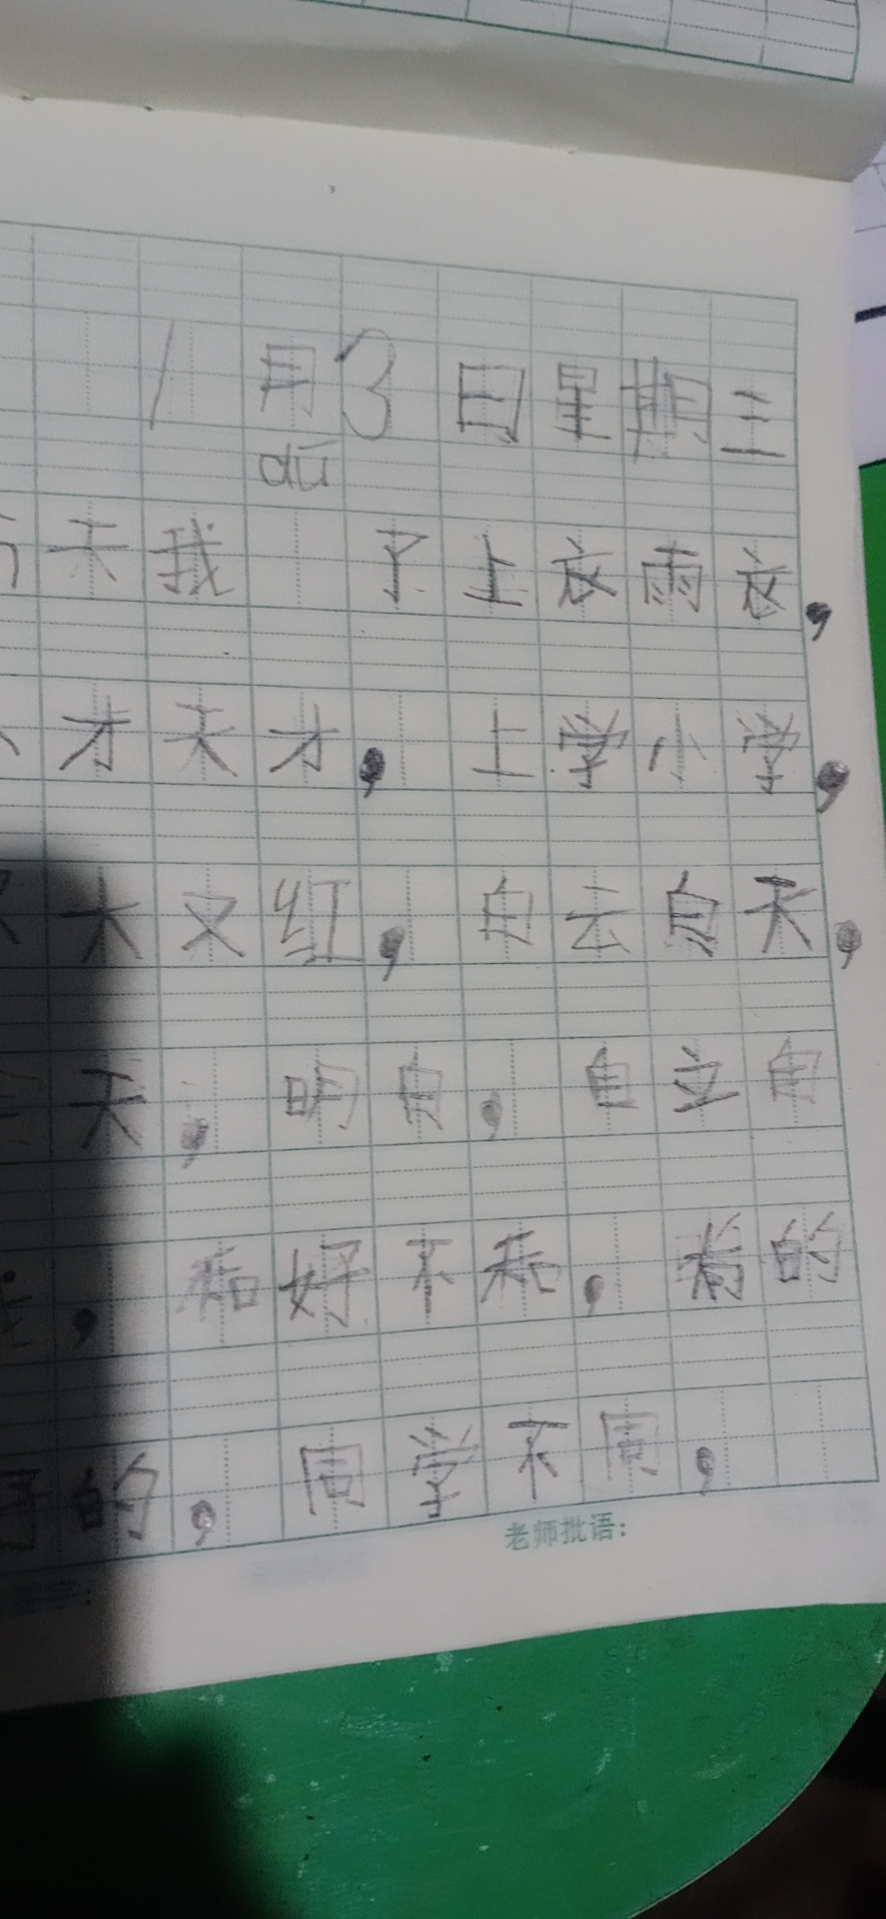 1月3日星期三
dū
天我 了上衣雨衣,
才天才, 上学小学,
木又红, 白云白天,
天, 明白, 自立自
, 和好不和, 的
的, 同学不同,
老师批语: